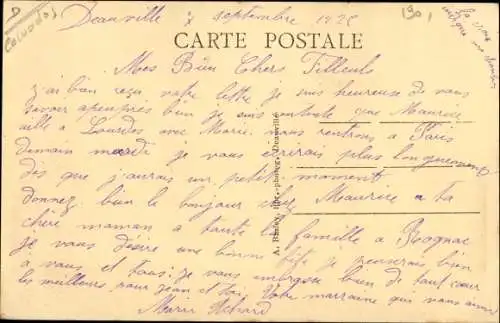 D
Calvados
Deauville 7 septembre 1925
CARTE POSTALE
Mes Bien Chers Filleuls
j'ai bien reçu votre lettre je suis heureuse de vous
savoir apeuprès bien je suis contente que Maurice
aille a Lourdes avec Marie nous rentrons a Paris
demain mardi je vous écrirais plus longuement
dès que j'aurais un petit moment
donnez bien le bonjour chez Maurice a ta
chère maman a toute la famille a Rognac
je vous désire une bonne fête je penserais bien
a vous et tous je vous embrasse bien de tout cœur
les meilleurs pour jean et toi Votre marraine qui vous aime
Marie